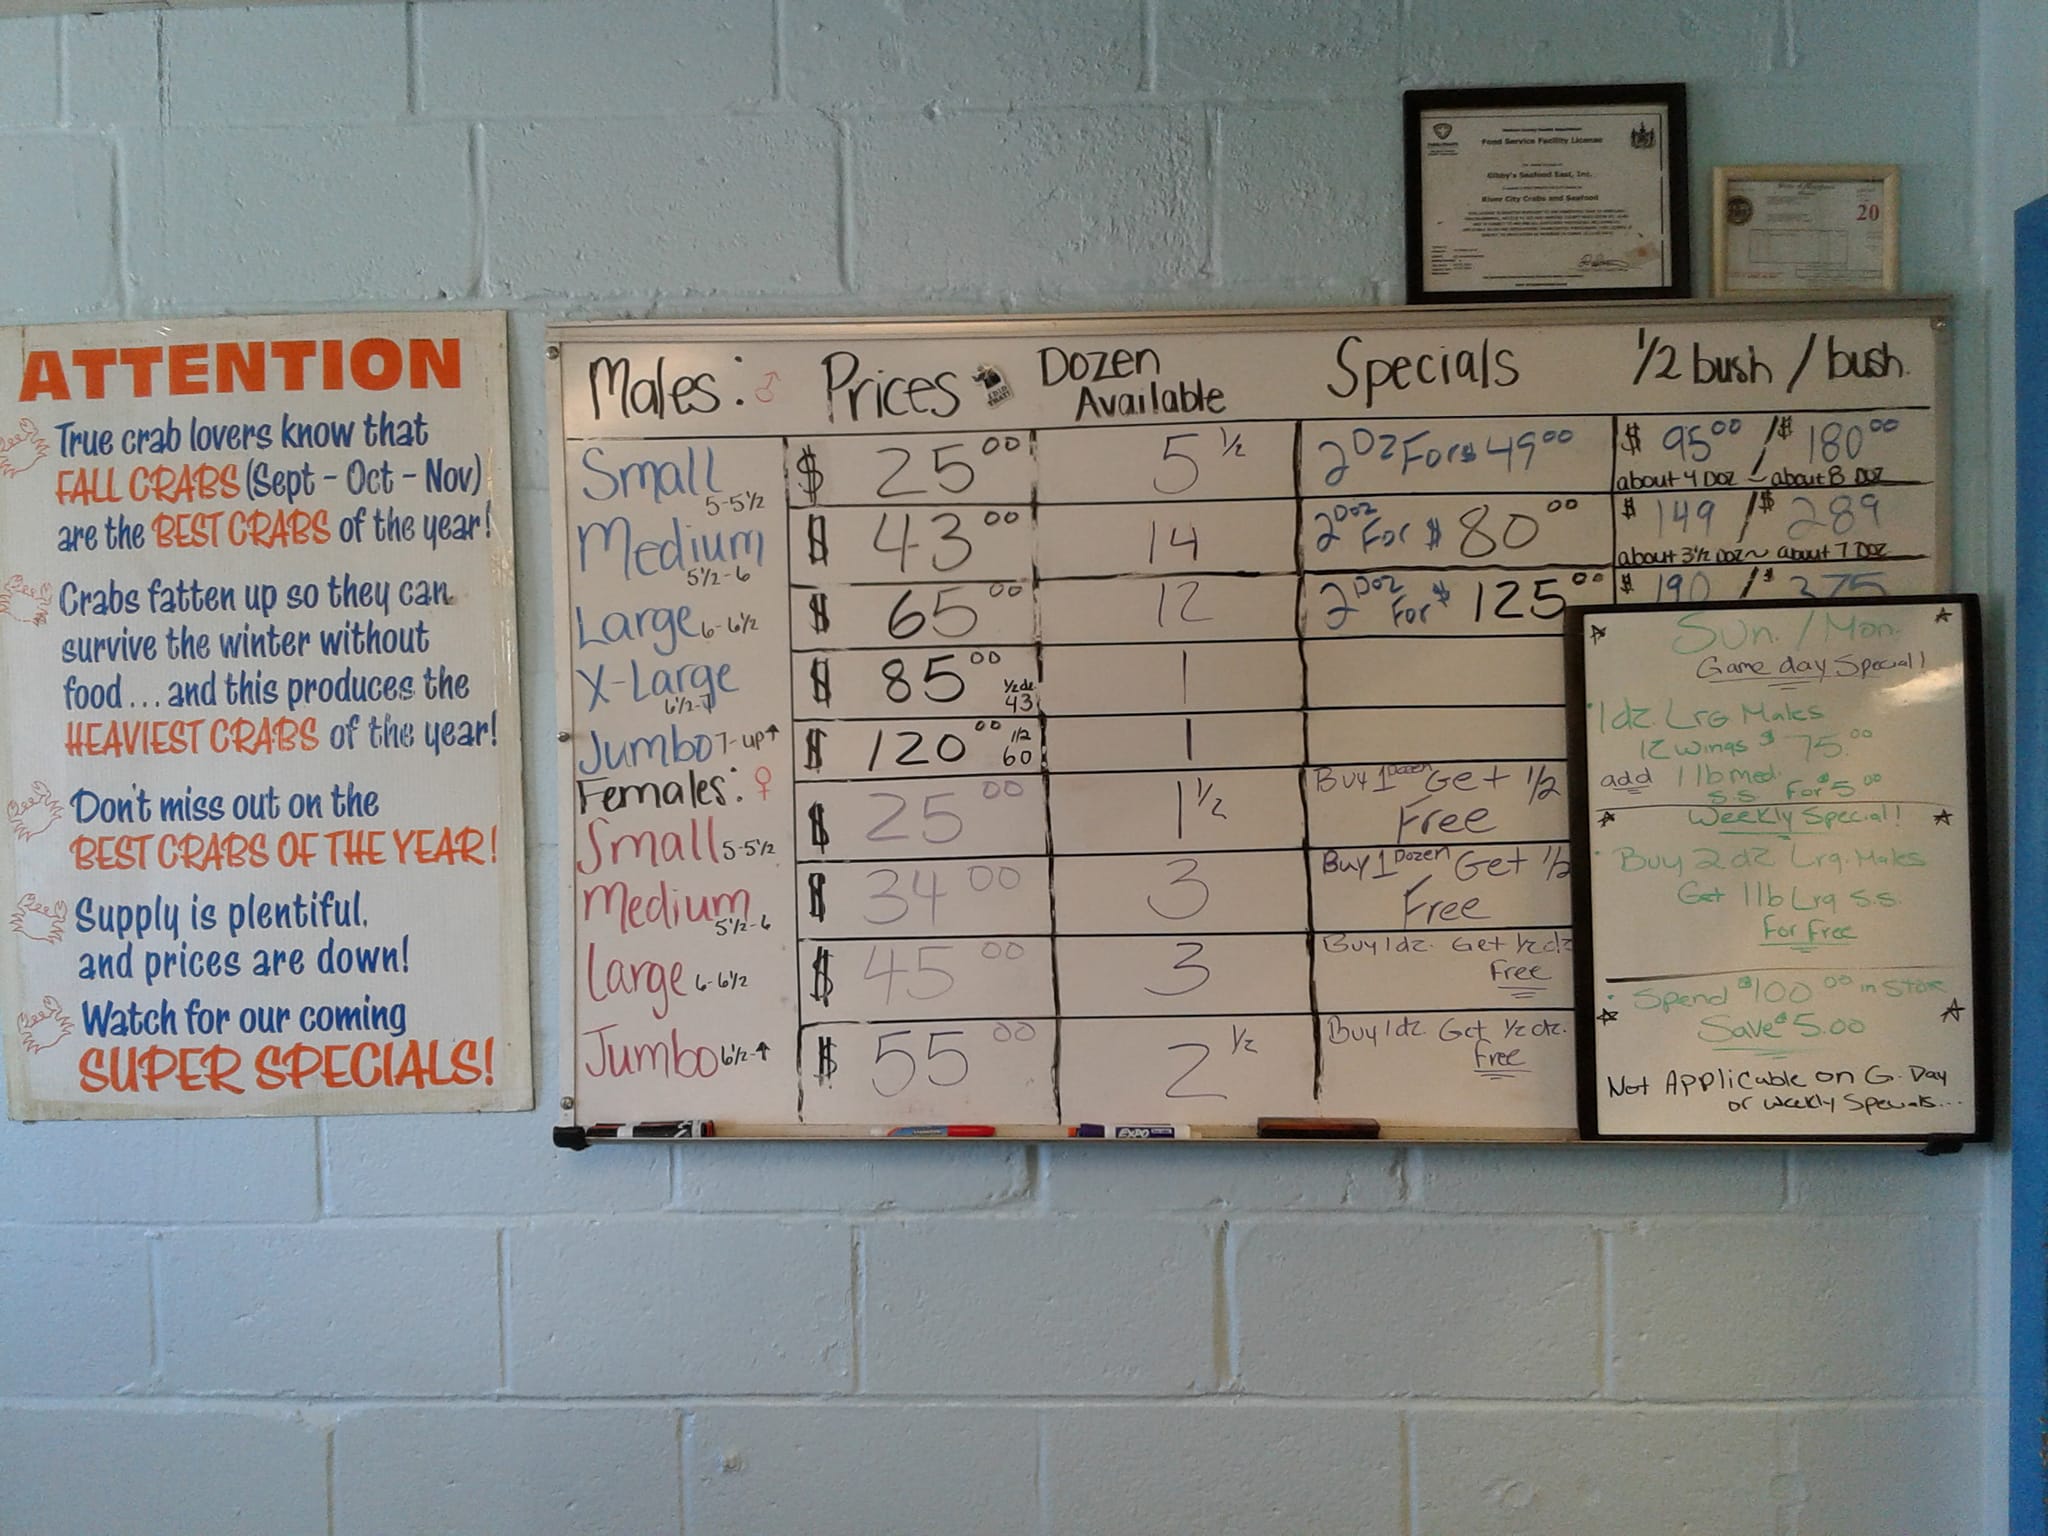 ATTENTION
True crab lovers know that
FALL CRABS (Sept - Oct - Nov)
are the BEST CRABS of the year!
Crabs fatten up so they can
survive the winter without
food...and this produces the
HEAVIEST CRABS of the year!
Don't miss out on the
BEST CRABS OF THE YEAR!
Supply is plentiful,
and prices are down!
Watch for our coming
SUPER SPECIALS!
Food Service Facility License
Gibby's Seafood East, Inc.
River City Crabs and Seafood
20
Males: ♂ Prices Dozen Available Specials 1/2 bush / bush.
Small 5-5½ $ 25 00 5 ½ 2 DZ For $ 49 00 $ 95 00 / $ 180 00
about 4 DOZ ~ about 8 DOZ
Medium 5½-6 $ 43 00 14 2 Doz For $ 80 00 $ 149 / $ 289
about 3½ DOZ ~ about 7 DOZ
Large 6-6½ $ 65 00 12 2 Doz For $ 125 00 $ 190 / $ 375
X-Large 6½-7 $ 85 00 ½ dz 43 1
Jumbo 7-up↑ $ 120 00 1/2 60 1
Females: ♀
Small 5-5½ $ 25 00 1 ½ Buy 1 Dozen Get 1/2 Free
Medium 5½-6 $ 34 00 3 Buy 1 Dozen Get 1/2 Free
Large 6-6½ $ 45 00 3 Buy 1dz. Get ½ dz Free
Jumbo 6½-↑ $ 55 00 2 ½ Buy 1dz. Get ½ dz. Free
EXPO
Sun. / Mon.
Game day Special!
1dz. Lrg Males
12 wings $ 75.00
add 1 lb med.
s.s. for $5.00
Weekly Special!
Buy 2 dz Lrg. Males
Get 1 lb Lrg s.s.
For Free
Spend $100.00 in store
Save $5.00
Not Applicable on G. Day
or Weekly Specials...